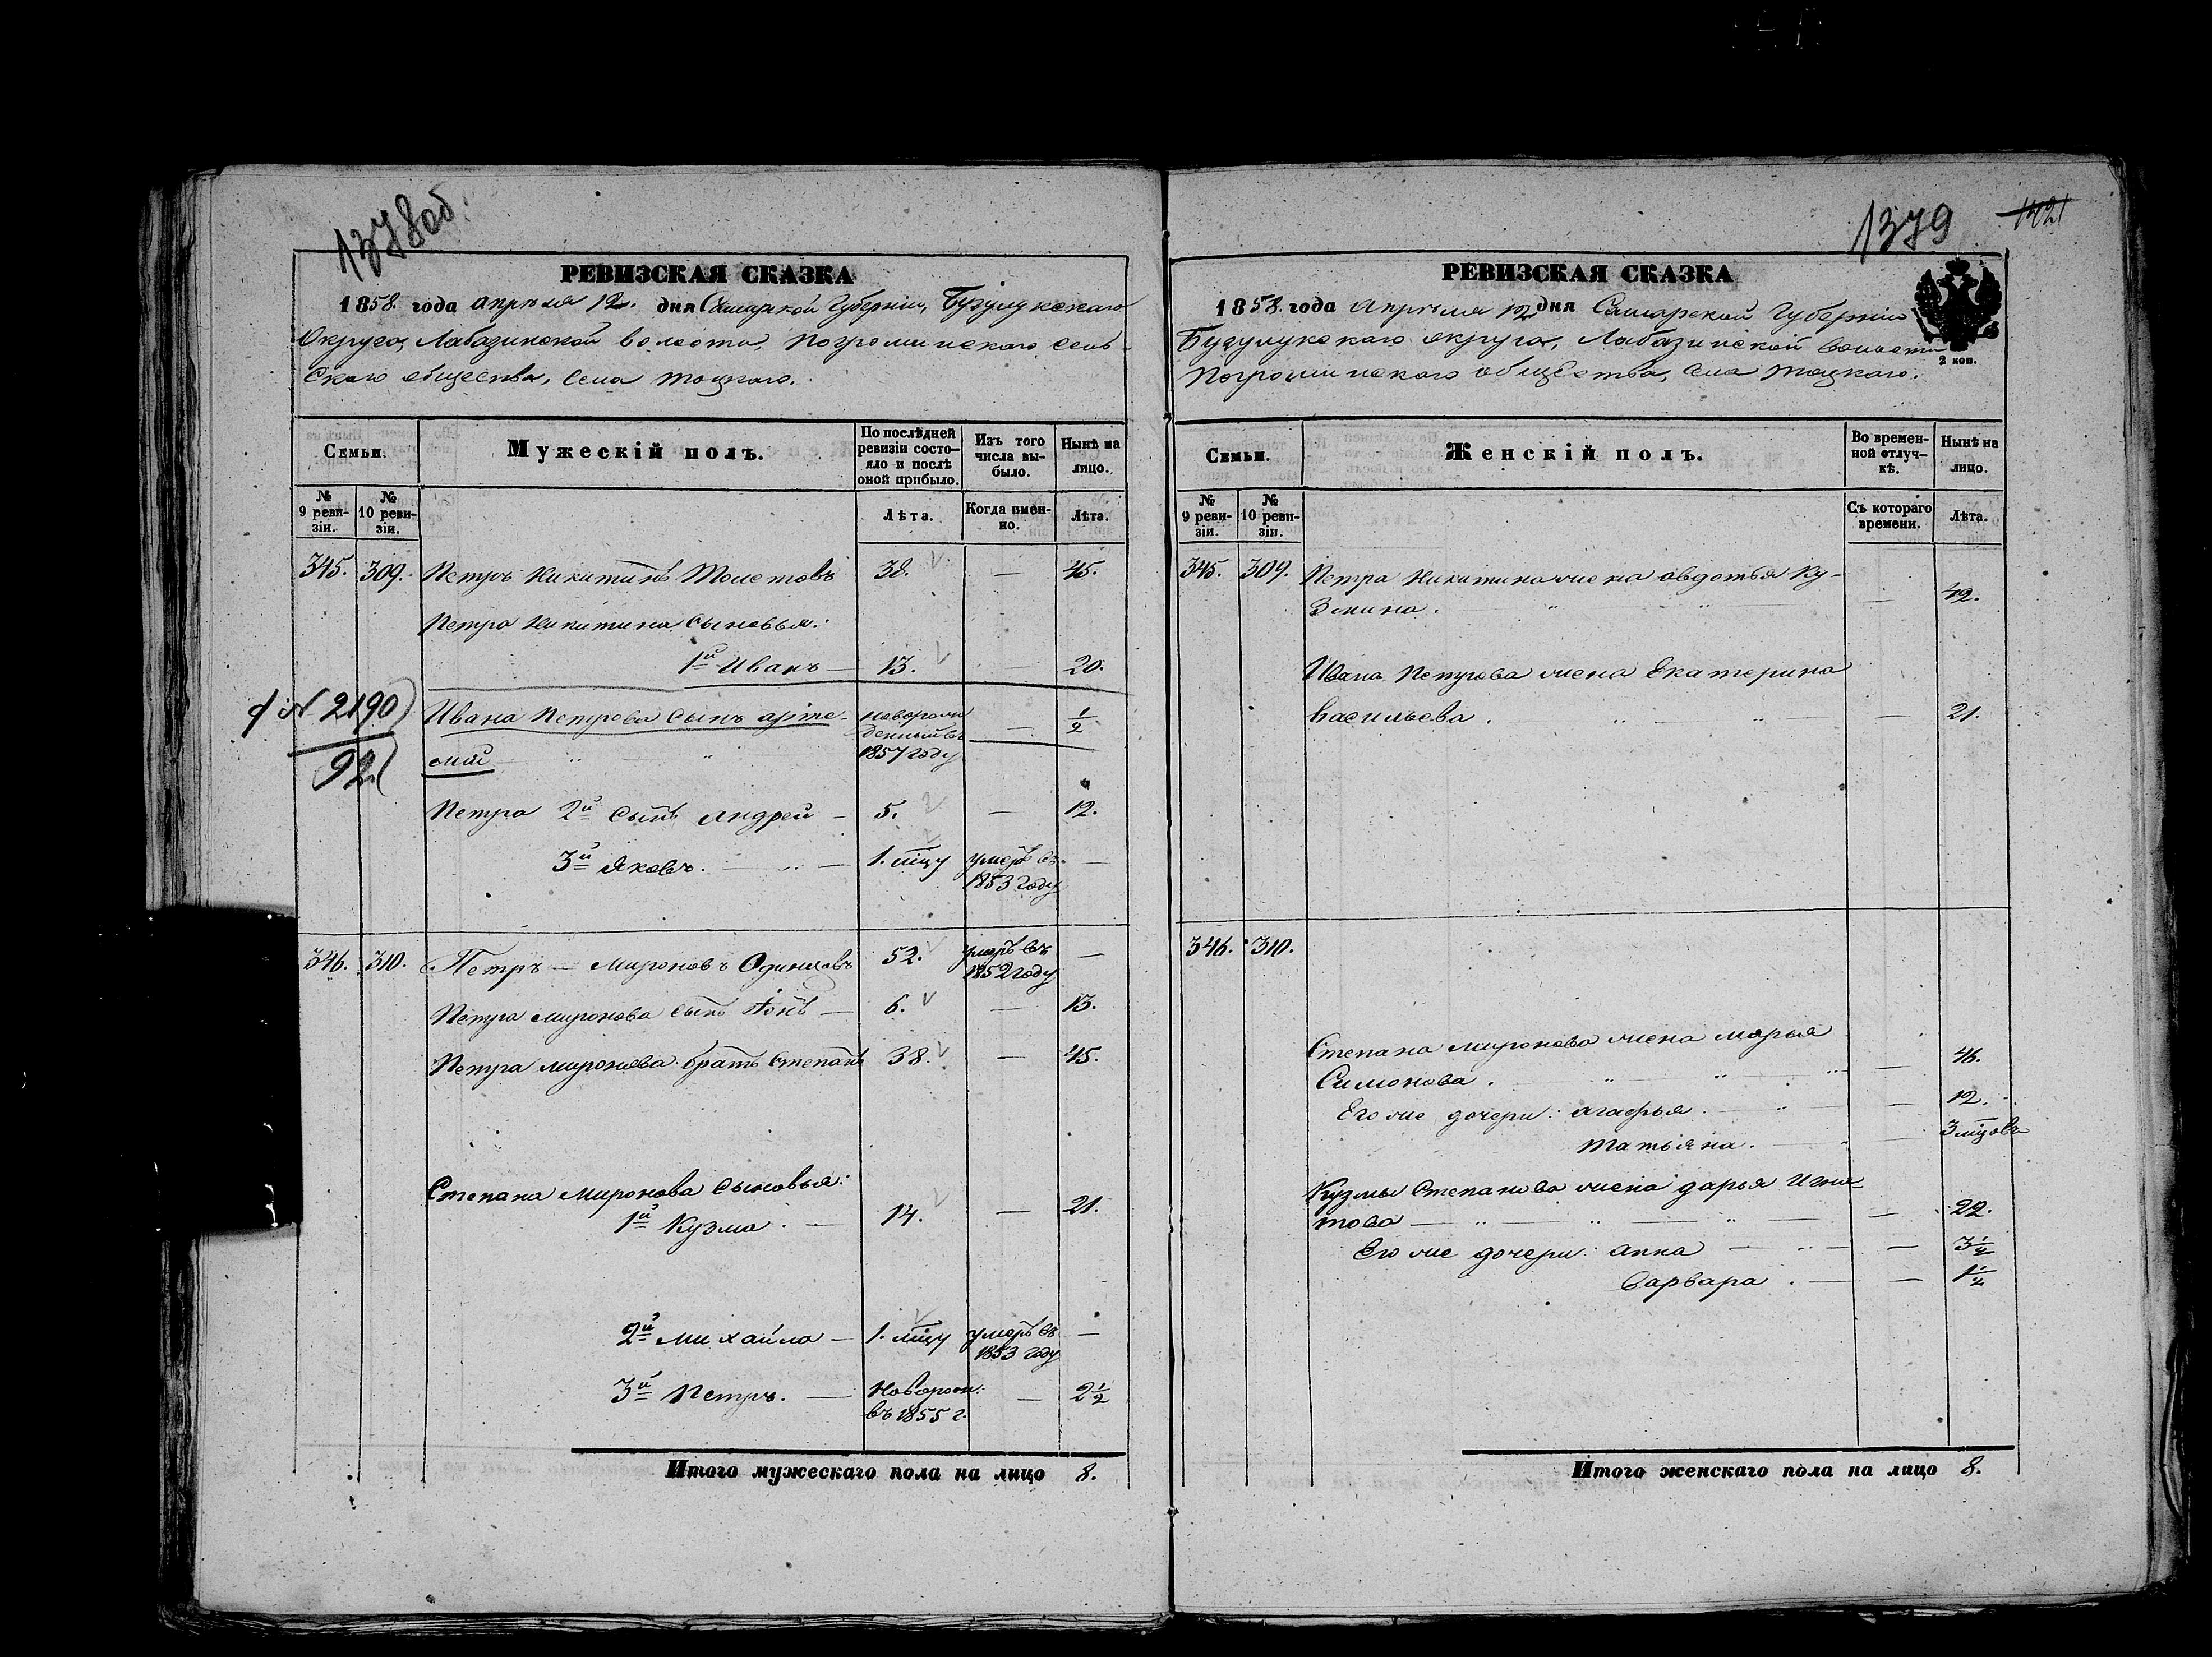 1378об.
РЕВИЗСКАЯ СКАЗКА
1858. года апрѣля 12. дня Самарской Губерніи, Бузулукскаго
Округа, Лабазинской волости, Погроминскаго сель-
скаго общества, села Тоцкаго.
Семьи.
Мужескій полъ.
По послѣдней ревизіи состояло и послѣ оной прибыло.
Изъ того числа выбыло.
Нынѣ на лицо.
№ 9 ревизіи.
№ 10 ревизіи.
Лѣта.
Когда именно.
Лѣта.
345. 309. Петръ Никитинъ Толстовъ 38. — 45.
Петра Никитина сыновья:
1й Иванъ — 13. — 20.
№ 2190
92
Ивана Петрова сынъ арте- новорож — 1/2
мій " " денный въ
1857 году
Петра 2й сынъ Андрей — 5. — 12.
3й Яковъ. — " — 1. мѣцу умеръ въ —
1853 году
346. 310. Петръ — Мироновъ 52. умеръ въ —
1852 году
Петра миронова сынъ — 6. — 13.
Петра миронова братъ Степанъ 38. — 45.
Степана Миронова сыновья:
1й Кузма. — 14. — 21.
2й Михайла — 1. мѣцу умеръ въ —
1853 году
3й Петръ. — Новорож. — 2 1/2
въ 1855 г.
Итого мужескаго пола на лицо 8.
1379
РЕВИЗСКАЯ СКАЗКА
1858. года Апрѣля 12 дня Самарской Губерніи
Бузулукскаго округа, Лабазинской волости
Погроминскаго общества, села Тоцкаго.
2 коп.
Семьи.
Женскій полъ.
Во временной отлучкѣ.
Нынѣ на лицо.
№ 9 ревизіи.
№ 10 ревизіи.
Съ котораго времени.
Лѣта.
345. 309. Петра Никитина жена авдотья Ку-
змина. " " — 42.
Ивана Петрова жена Екатерина
васильева. " " — 21.
346. 310.
Степана миронова жена марья
Симонова. " " " — 46.
Его же дочери: агафья. — " — 12.
Татьяна. — " — 3 мѣцовъ
Кузмы Степанова жена дарья Игна-
това — " — " — " — — 22.
Его же дочери: анна — " — — 3 1/2
варвара. — — 1 1/2
Итого женскаго пола на лицо 8.